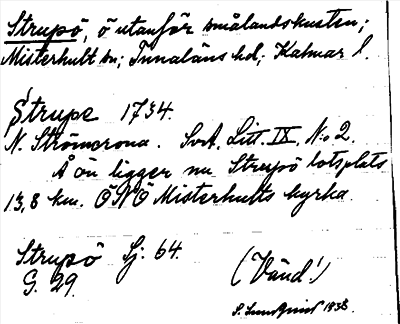 Strupö, ö utanför smålandskusten;
Misterhult sn; Tunaläns hd; Kalmar l.
Strupe 1734.
N. Strömcrona. SvA. Litt. IX, N:o 2.
Å ön ligger nu Strupö lotsplats
13,8 km. ONO Misterhults kyrka.
Strupö Sj. 64.
G. 29.
(Vänd!)
S. Lundquist 1938